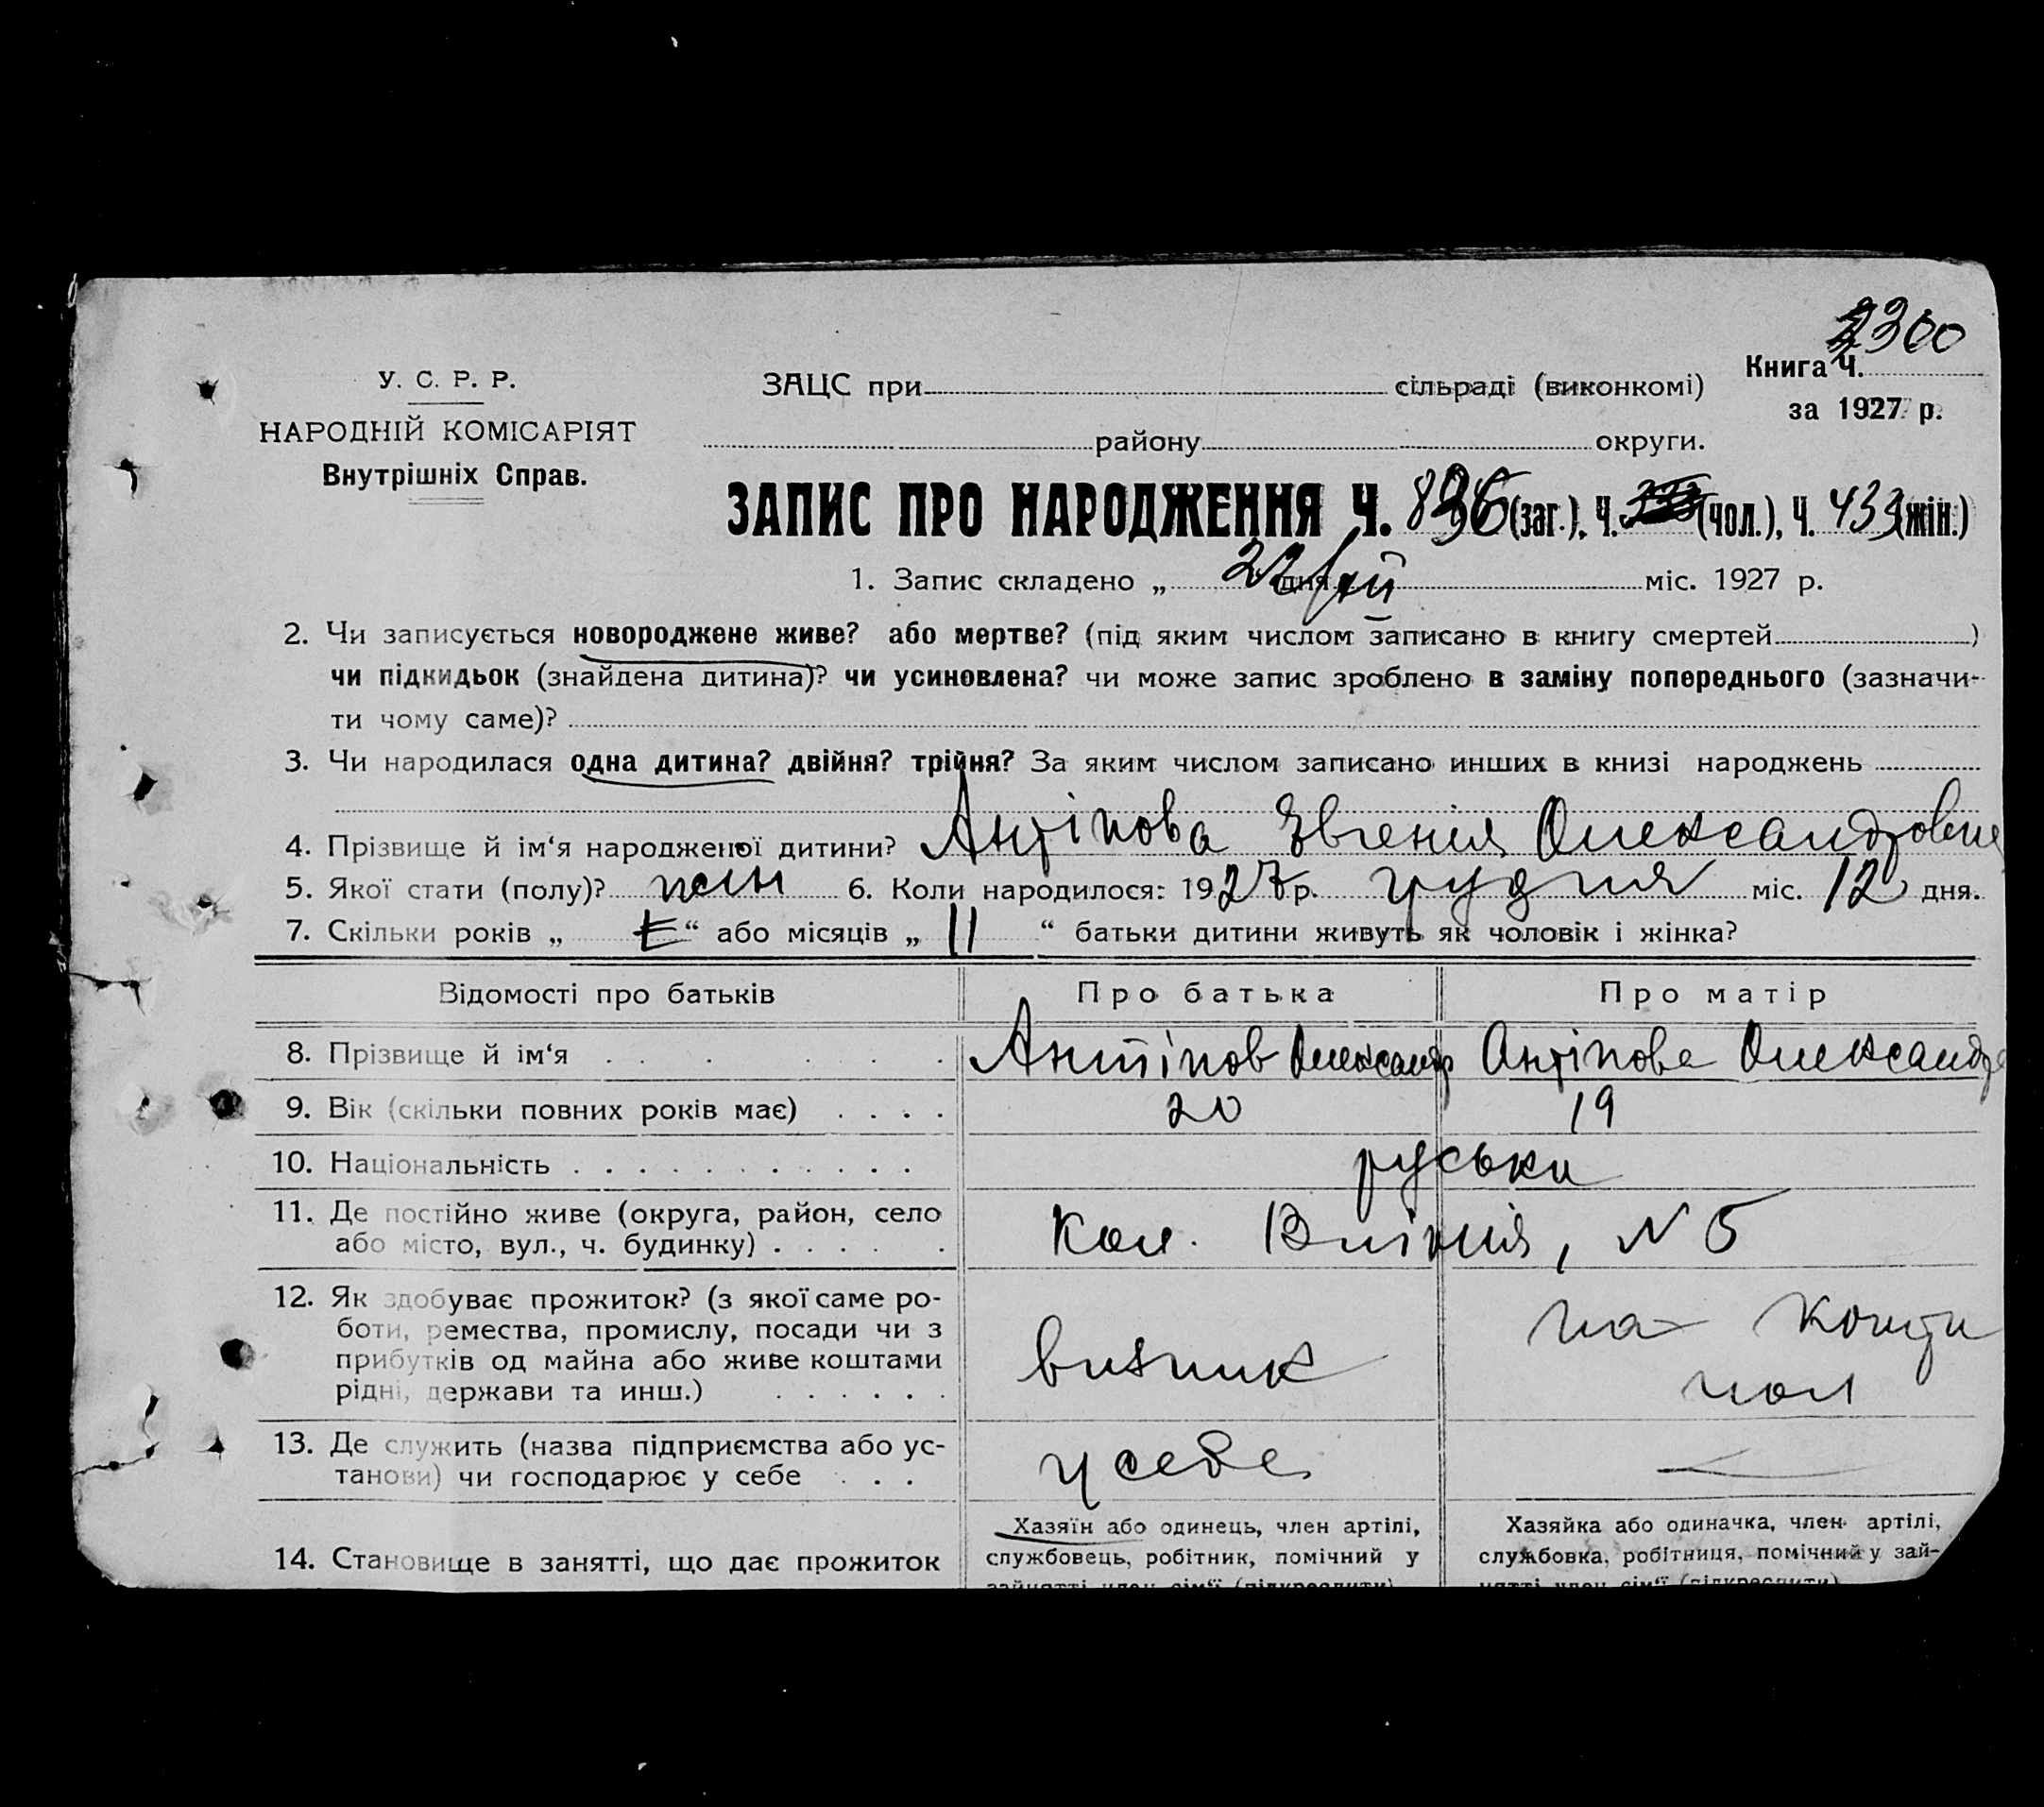 2300
У. С. Р. Р.
ЗАЦС при сільраді (виконкомі)
Книга Ч.
за 1927 р.
НАРОДНІЙ КОМІСАРІЯТ
району округи.
Внутрішніх Справ.
ЗАПИС ПРО НАРОДЖЕННЯ Ч. 836 (заг.), Ч. (чол.), Ч. 433 (жін.)
1. Запис складено „ 22 дня міс. 1927 р.
2. Чи записується новороджене живе? або мертве? (під яким числом записано в книгу смертей )
чи підкидьок (знайдена дитина)? чи усиновлена? чи може запис зроблено в заміну попереднього (зазначи-
ти чому саме)?
3. Чи народилася одна дитина? двійня? трійня? За яким числом записано инших в книзі народжень
4. Прізвище й ім‘я народженої дитини? Антіпова Євгенія Олександровна
5. Якої стати (полу)? жін 6. Коли народилося: 1927 р. грудня міс. 12 дня.
7. Скільки років „ “ або місяців „ 11 “ батьки дитини живуть як чоловік і жінка?
Відомості про батьків Про батька Про матір
8. Прізвище й ім‘я Антіпов Олександр Антіпова Олександра
9. Вік (скільки повних років має) 20 19
10. Національність руськи
11. Де постійно живе (округа, район, село
або місто, вул., ч. будинку) Кол. В лінія, N 5
12. Як здобуває прожиток? (з якої саме ро-
боти, ремества, промислу, посади чи з
прибутків од майна або живе коштами
рідні, держави та инш.)
візник
на кошти
чол
13. Де служить (назва підприємства або ус-
танови) чи господарює у себе
у себе
14. Становище в занятті, що дає прожиток
Хазяїн або одинець, член артілі,
службовець, робітник, помічний у
зайнятті член сім‘ї (підкреслити)
Хазяйка або одиначка, член артілі,
службовка, робітниця, помічний у зай-
нятті член сім‘ї (підкреслити)